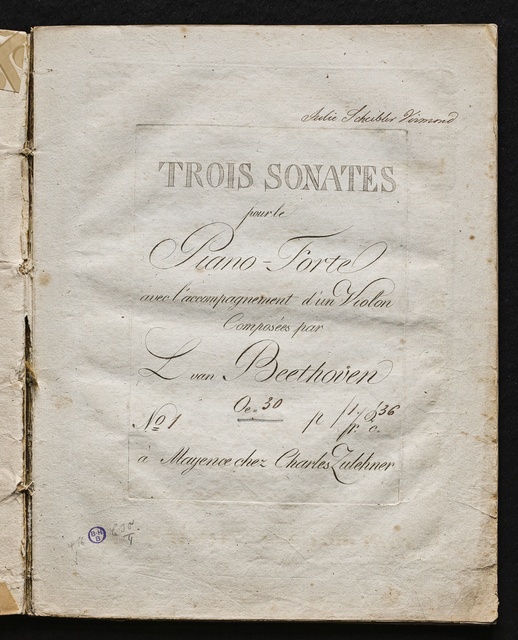 Julie Scheibler Vermond
TROIS SONATES
pour le
Piano-Forte
avec l'accompagnement d'un Violon
Composées par
L van Beethoven
No 1 Oe. 30 p f 36
fr. c.
à Mayence chez Charles Zulehner
B-H
B